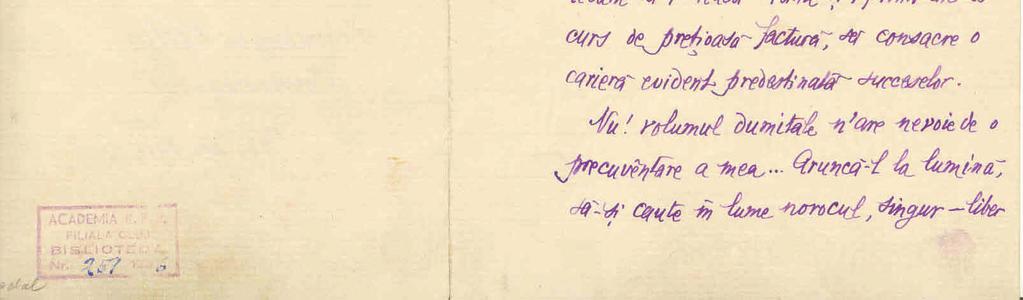 curs de prețioasă factură, să consacre o
carieră evident predestinată succeselor.
Nu! volumul Dumitale n'are nevoie de o
precuvêntare a mea... Aruncă-l la lumină,
să-și caute în lume norocul, singur – liber
ACADEMIA R. P. R.
FILIALA CLUJ
BIBLIOTECA
Nr. 259